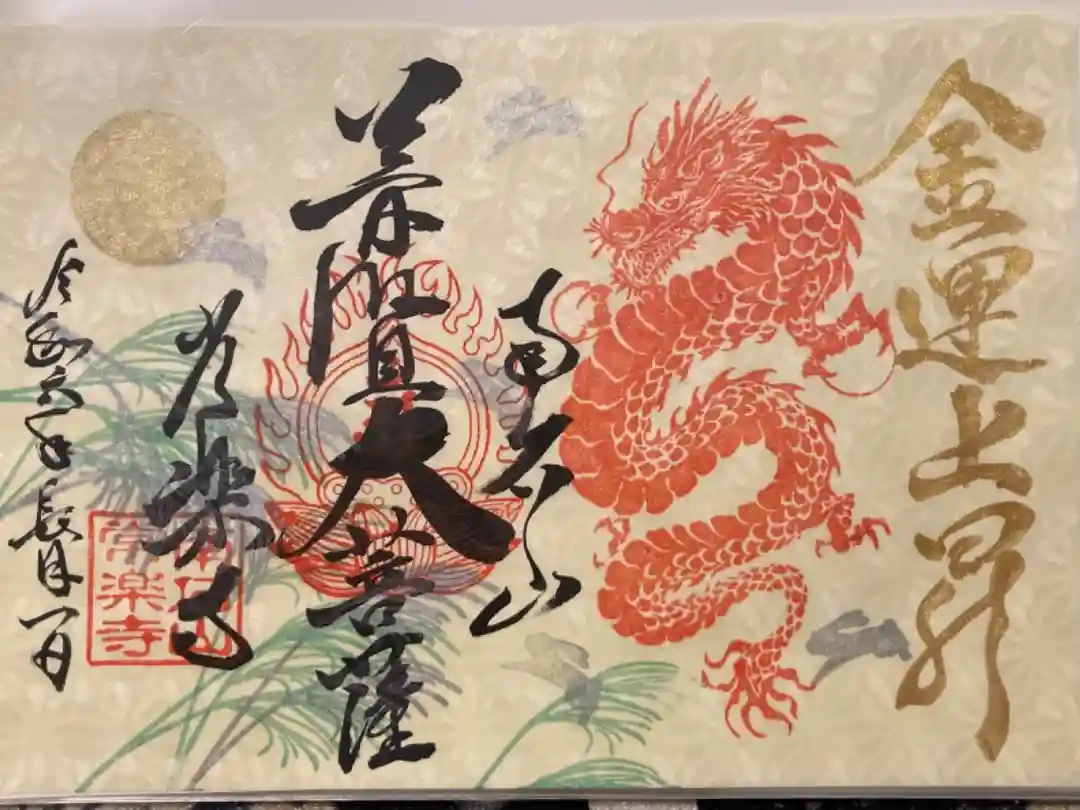 金運上昇
南石山
普賢大菩薩
常楽寺
令和六年長月一日
南石山
常楽寺